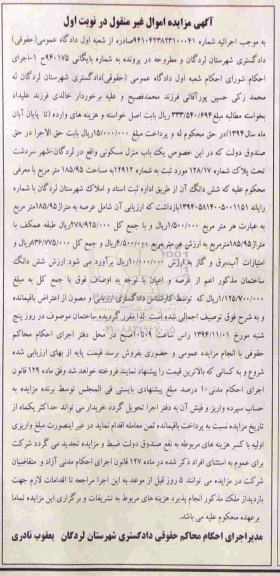 آگهی مزایده اموال غیر منقول در نوبت اول
به موجب اجرائیه شماره ۹۴۱۰۴۲۳۸۲۳۱۰۰۰۴۱صادره از شعبه اول دادگاه عمومی(حقوقی)
دادگستری شهرستان لردگان و مطروحه در پرونده به شماره بایگانی ۹۴۰۱۷۵ج ۱-اجرای
احکام شورای احکام شعبه اول دادگاه عمومی (حقوقی)دادگستری شهرستان لردگان له
محمد زکی حسین پورآقائی فرزند محمدفصیح و علیه برخوردار خالدی فرزند علیداد
بخواسته مطالبه مبلغ ۳۳۳/۵۴۰/۶۹۴ریال بابت اصل خواسته و هزینه های وارده (تا پایان آبان
ماه سال۱۳۹۴)در حق محکوم له و پرداخت مبلغ ۱۵/۰۰۰/۰۰۰ریال بابت حق الاجرا در حق
صندوق دولت که در این خصوص یک باب منزل مسکونی واقع در لردگان-شهر سردشت
تحت پلاک شماره ۱۲۸/۱۷ مورد ثبت شماره ۱۲۹۱۲به مساحت ۱۸۵/۹۵ متر مربع با معرفی
محکوم علیه که شش دانگ آن از طریق اداره ثبت اسناد و املاک شهرستان لردگان با شماره
رایانه ۱۳۹۴۰۵۸۱۴۰۰۵۰۰۱۱۵۱بازداشت که ارزیابی آن شامل عرصه به متراژ۱۸۵/۹۵متر مربع
به عبارت هر متر مربع ۱/۵۰۰/۰۰۰ریال و با جمع کل ۲۷۸/۹۲۵/۰۰۰ریال طبقه همکف با
متراژ۱۸۵/۹۵مترمربع به ارزش هر متر مربع ۴/۵۰۰/۰۰۰ریال و جمع کل ۸۳۶/۷۷۵/۰۰۰ریال و
امتیازات آب،برق و گاز به ارزش ۱۰/۰۰۰/۰۰۰ریال برآورد می شود ارزش شش دانگ
ساختمان مذکور اعم از عرصه و اعیان با توجه به اوصاف فوق با جمع کل به مبلغ
۱/۱۲۵/۷۰۰/۰۰۰ریال که توسط کارشناس دادگستری ارزیابی و مصون از اعتراض باقیمانده
و به شرح فوق توصیف اجمالی شده است لذا مقرر گردیده ساختمان موصوف در روز پنج
شنبه مورخ ۱۳۹۴/۱۱/۰۱ راس ساعت ۱۰:۰۹صبح در محل دفتر اجرای احکام محاکم
حقوقی با انجام مزایده عمومی و حضوری بفروش برسد قیمت پایه از بهای ارزیابی شده
شروع و به کسانی که بالاترین قیمت را پیشنهاد نمایند فروخته خواهد شد وفق ماده ۱۲۹ قانون
اجرای احکام مدنی۱۰ درصد مبلغ پیشنهادی بایستی فی المجلس توسط برنده مزایده به
حساب سپرده واریز و فیش آن به دفتر اجرا تحویل گردد خریدار می تواند حداکثر یکماه از
تاریخ مزایده نسبت به پرداخت باقیمانده ثمن معامله اقدام نماید در غیر اینصورت مبلغ واریزی
اولیه با کسر هزینه های مربوطه به نفع صندوق دولت ضبط و مزایده تجدید می گردد شرکت
برای عموم به استثنای افراد ذکر شده در ماده ۱۲۷ قانون اجرای احکام مدنی آزاد و متقاضیان
شرکت در مزایده می توانند ۵ روز قبل از موعد به این اجرا مراجعه تا اقدامات لازم جهت
بازدیداز ملک مذکور انجام پذیرد هزینه های مربوط به تشریفات و برگزاری این مزایده تماما
برعهده محکوم علیه می باشد.
مدیراجرای احکام محاکم حقوقی دادگستری شهرستان لردگان یعقوب نادری